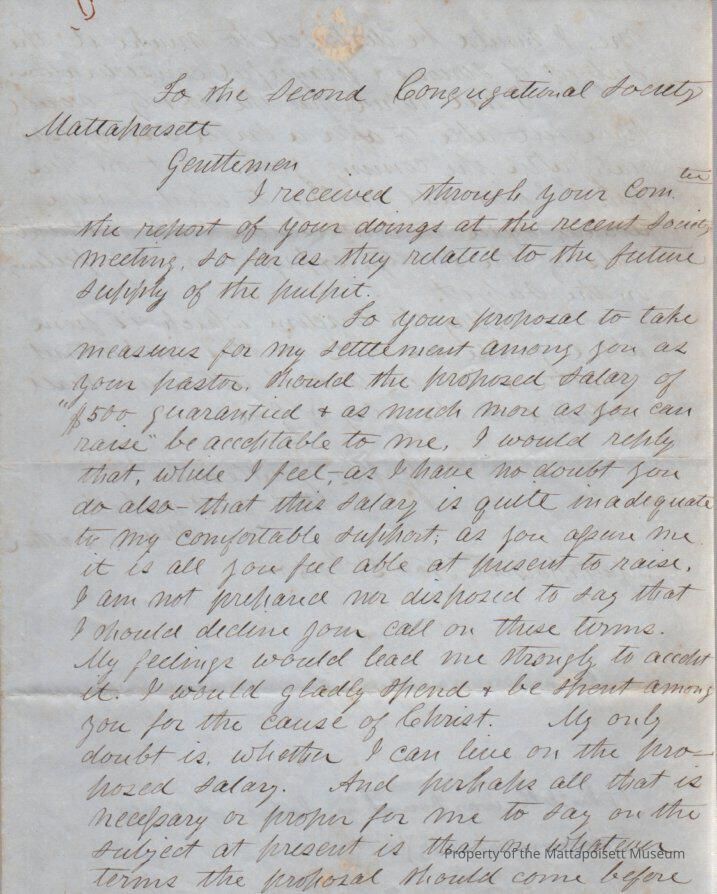 To the Second Congregational Society
Mattapoisett
Gentlemen
I received through your Com.tee
the report of your doings at the recent Society
meeting, so far as they related to the future
supply of the pulpit.
To your proposal to take
measures for my settlement among you as
your pastor, should the proposed salary of
"$500 guarantied & as much more as you can
raise" be acceptable to me, I would reply
that, while I feel, as I have no doubt you
do also - that this salary is quite inadequate
to my comfortable support; as you assure me
it is all you feel able at present to raise,
I am not prepared nor disposed to say that
I should decline your call on these terms.
My feelings would lead me strongly to accept
it. I would gladly spend & be spent among
you for the cause of Christ. My only
doubt is, whether I can live on the pro-
posed salary. And perhaps all that is
necessary or proper for me to say on the
subject at present is that on whatever
terms the proposal should come before
Property of the Mattapoisett Museum